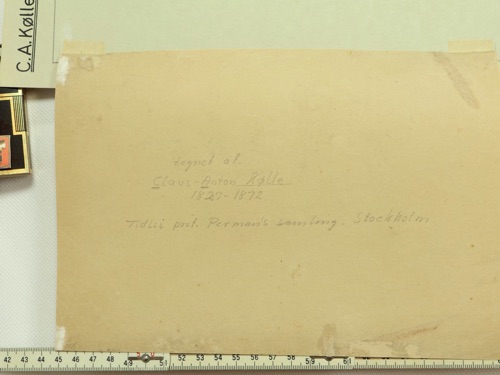 C.A. Kølle
tegnet af.
Claus-Anton Kølle
1827-1872
Tidl: prof. Perman's samling. Stockholm
42 43 44 45 46 47 48 49 51 52 53 54 55 56 57 58 59 61 62 63 64 65